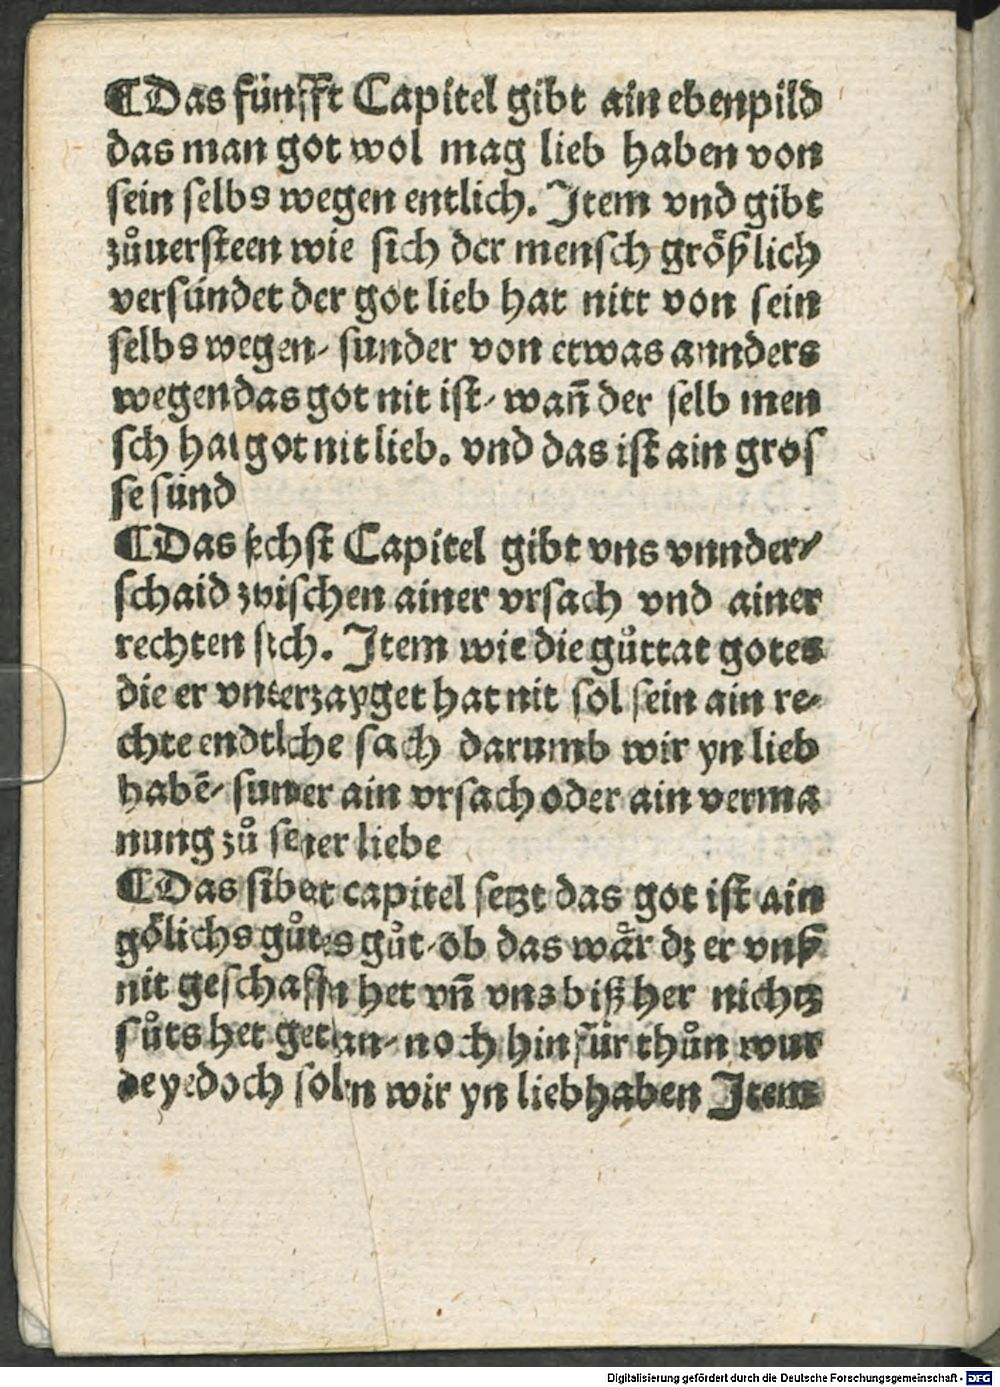 ¶Das fünfft Capitel gibt ain ebenpild
das man got wol mag lieb haben von
sein selbs wegen entlich. Item vnd gibt
zůuersteen wie sich der mensch größlich
versündet der got lieb hat nitt von sein
selbs wegen/ sunder von etwas annders
wegen das got nit ist/ wañ der selb men
sch hat got nit lieb. vnd das ist ain gros
se sünd
¶Das sechst Capitel gibt vns vnnder/
schaid zwischen ainer vrsach vnd ainer
rechten sich. Item wie die gůttat gotes
die er vnterzayget hat nit sol sein ain re/
chte endtlche sach darumb wir yn lieb
habē/ sunder ain vrsach oder ain verma
nung zů seiner liebe
¶Das sibet capitel setzt das got ist ain
gölichs gůtes gůt/ ob das wår dz er vnß
nit geschaffn het vñ vns biß her nichtz
gůts het getan/ noch hin für thůn wur
de yedoch solln wir yn liebhaben Item
Digitalisierung gefördert durch die Deutsche Forschungsgemeinschaft - DFG